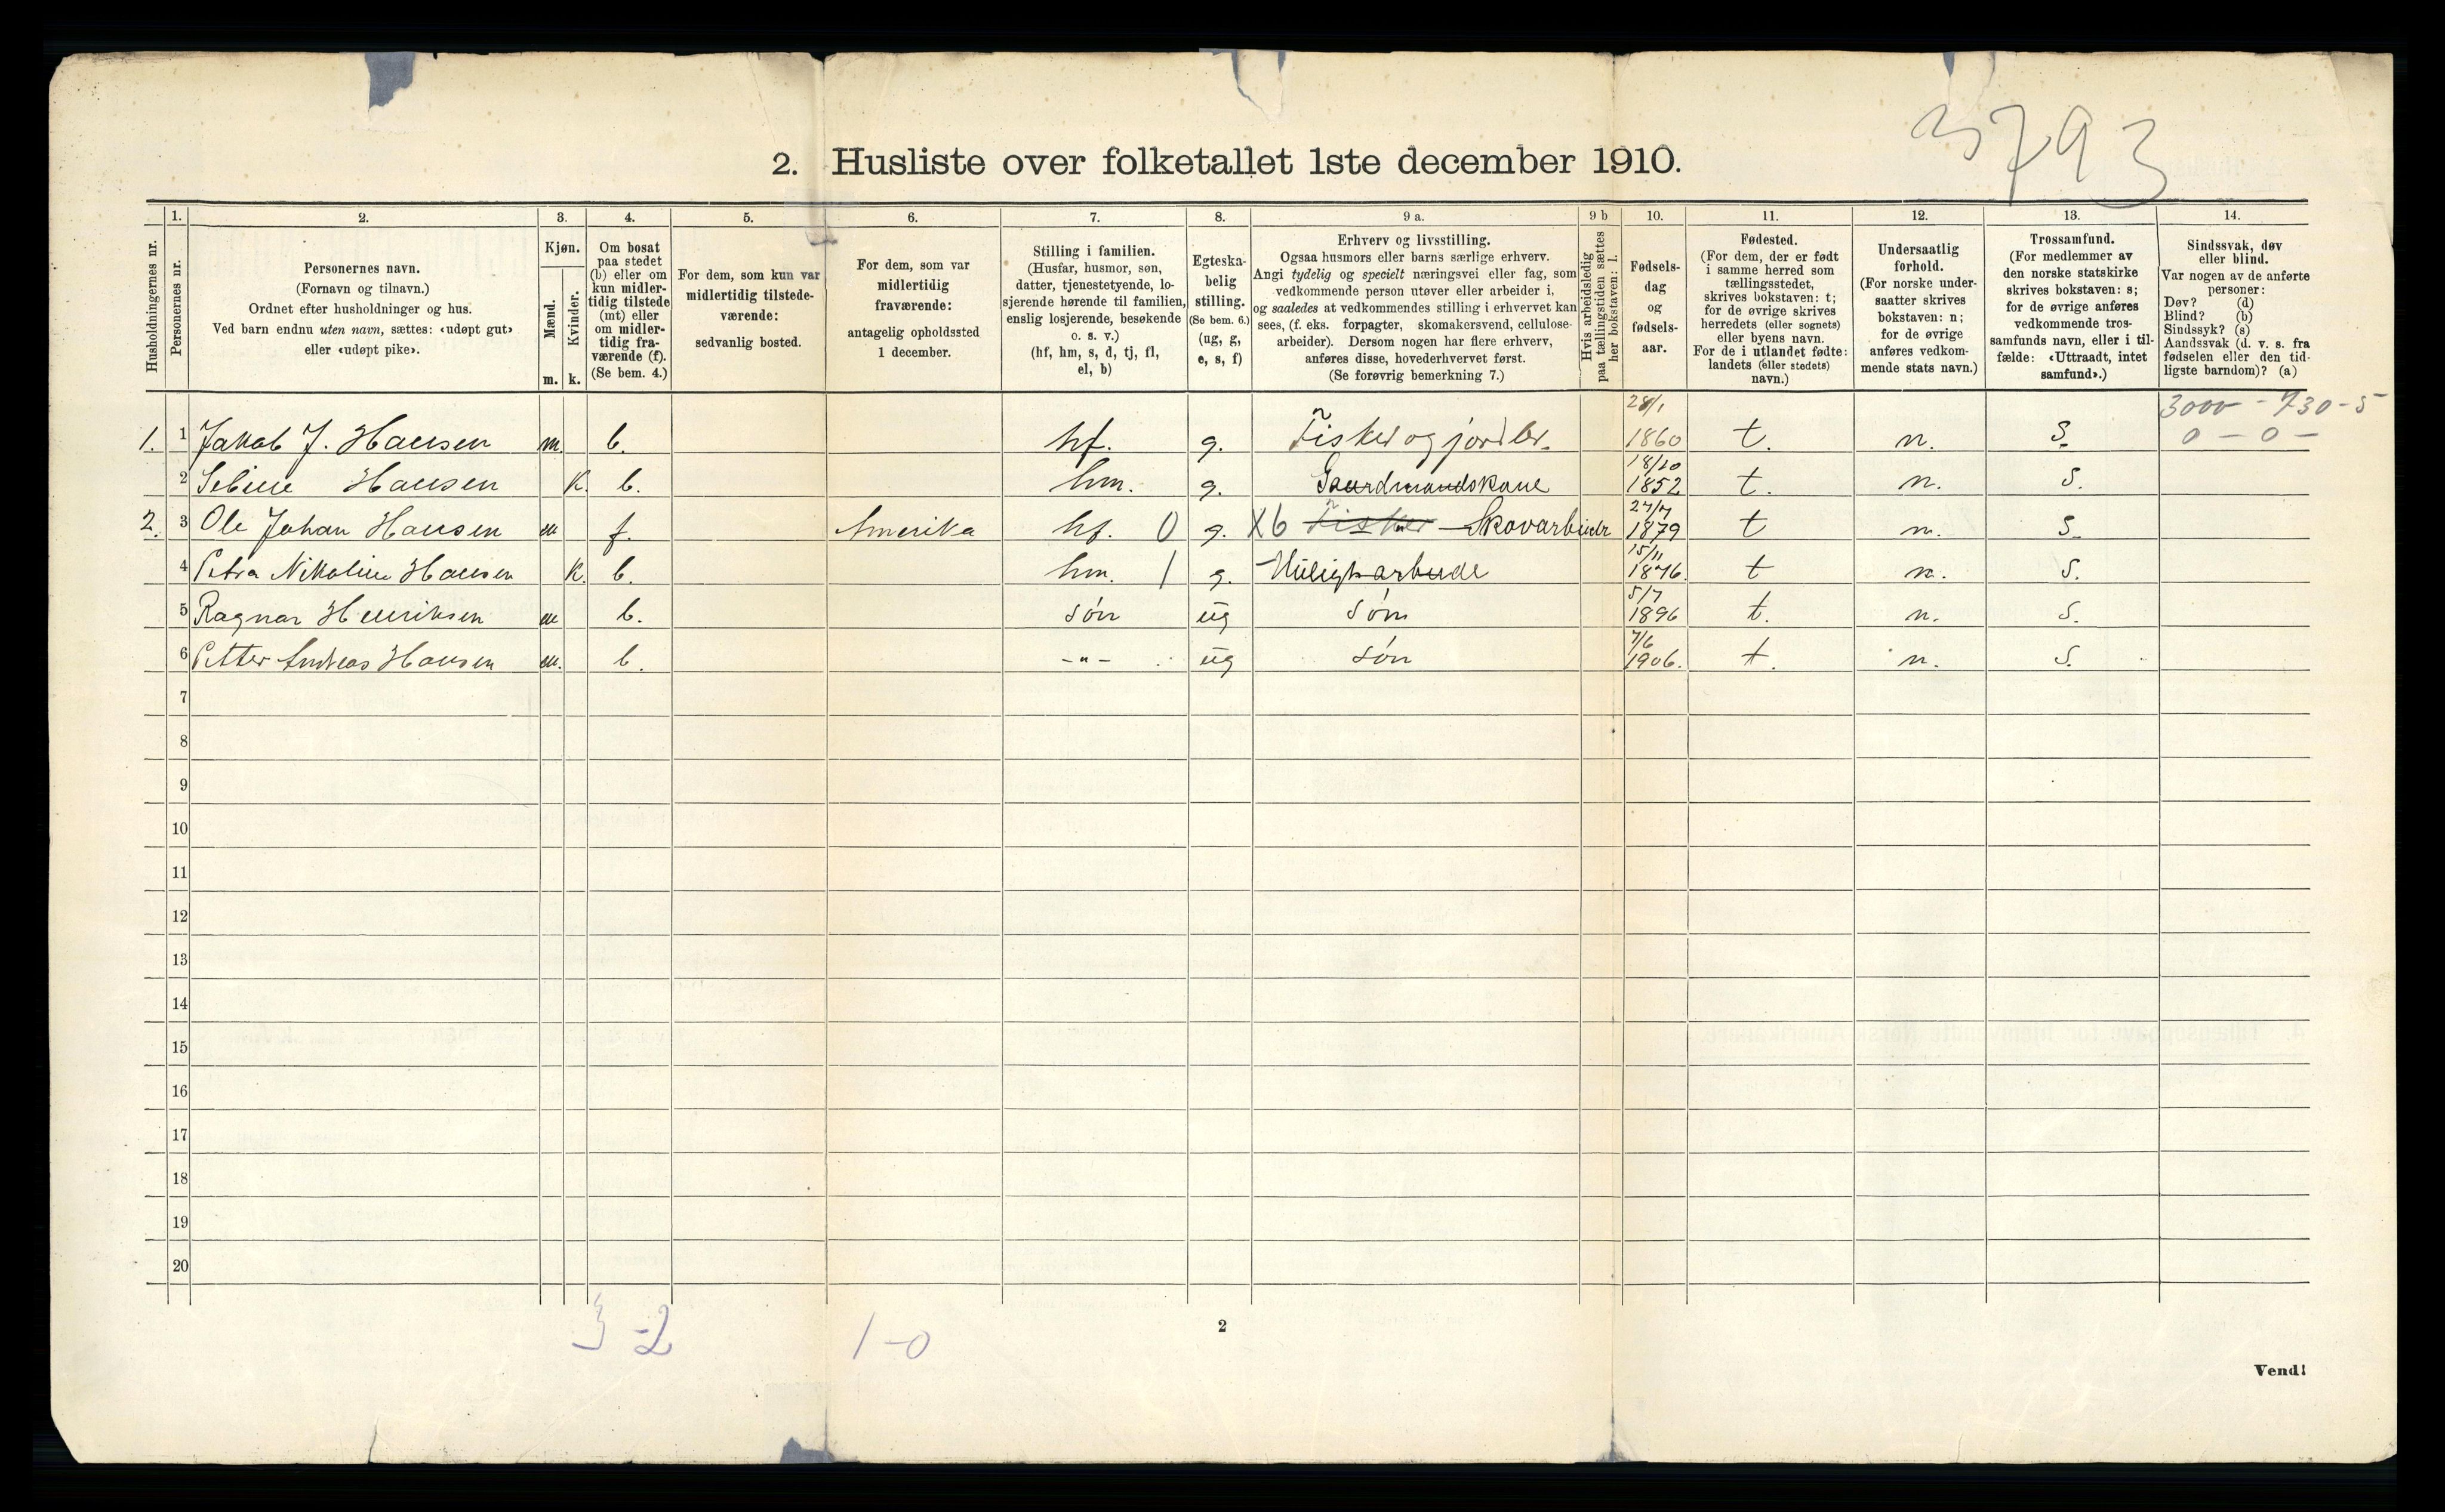 3793
2. Husliste over folketallet 1ste december 1910.
Husholdningernes nr.
1.
Personernes nr.
2.
Personernes navn.
(Fornavn og tilnavn.)
Ordnet efter husholdninger og hus.
Ved barn endnu uten navn, sættes: «udøpt gut»
eller «udøpt pike».
3.
Kjøn.
Mænd.
Kvinder.
m. k.
4.
Om bosat
paa stedet
(b) eller om
kun midler-
tidig tilstede
(mt) eller
om midler-
tidig fra-
værende (f).
(Se bem. 4.)
5.
For dem, som kun var
midlertidig tilstede-
værende:
sedvanlig bosted.
6.
For dem, som var
midlertidig
fraværende:
antagelig opholdssted
1 december.
7.
Stilling i familien.
(Husfar, husmor, søn,
datter, tjenestetyende, lo-
sjerende hørende til familien,
enslig losjerende, besøkende
o. s. v.)
(hf, hm, s, d, tj, fl,
el, b)
8.
Egteska-
belig
stilling.
(Se bem. 6.)
(ug, g,
e, s, f)
9 a.
Erhverv og livsstilling.
Ogsaa husmors eller barns særlige erhverv.
Angi tydelig og specielt næringsvei eller fag, som
vedkommende person utøver eller arbeider i,
og saaledes at vedkommendes stilling i erhvervet kan
sees, (f. eks. forpagter, skomakersvend, cellulose-
arbeider). Dersom nogen har flere erhverv,
anføres disse, hovederhvervet først.
(Se forøvrig bemerkning 7.)
9 b
Hvis arbeidsledig
paa tællingstiden sættes
her bokstaven: l.
10.
Fødsels-
dag
og
fødsels-
aar.
11.
Fødested.
(For dem, der er født
i samme herred som
tællingsstedet,
skrives bokstaven: t;
for de øvrige skrives
herredets (eller sognets)
eller byens navn.
For de i utlandet fødte:
landets (eller stedets)
navn.)
12.
Undersaatlig
forhold.
(For norske under-
saatter skrives
bokstaven: n;
for de øvrige
anføres vedkom-
mende stats navn.)
13.
Trossamfund.
(For medlemmer av
den norske statskirke
skrives bokstaven: s;
for de øvrige anføres
vedkommende tros-
samfunds navn, eller i til-
fælde: «Uttraadt, intet
samfund».)
14.
Sindssvak, døv
eller blind.
Var nogen av de anførte
personer:
Døv? (d)
Blind? (b)
Sindssyk? (s)
Aandssvak (d. v. s. fra
fødselen eller den tid-
ligste barndom)? (a)
3000 - 730-5
1. 1 Jakob J. Hansen m. b. hf. g. Fisker og jordbr. 28/1 1860 t. n. S. 0 - 0 -
2 Sebine Hansen K. b. hm. g. Gaardmandskone 18/10 1852 t. n. S.
2. 3 Ole Johan Hansen m f. Amerika hf. 0 g. X6 Fisker Skovarbeider 27/7 1879 t n. S.
4 Petra Nikoline Hansen K. b. hm. 1 g. Huligt arbeide 15/11 1876. t n. S.
5 Ragnar Henriksen m b. søn ug søn 5/7 1896 t. n. S.
6 Petter Andreas Hansen m. b. -"- ug søn 7/6 1906. t. n. S.
7
8
9
10
11
12
13
14
15
16
17
18
19
20
3-2 1-0
2
Vend!